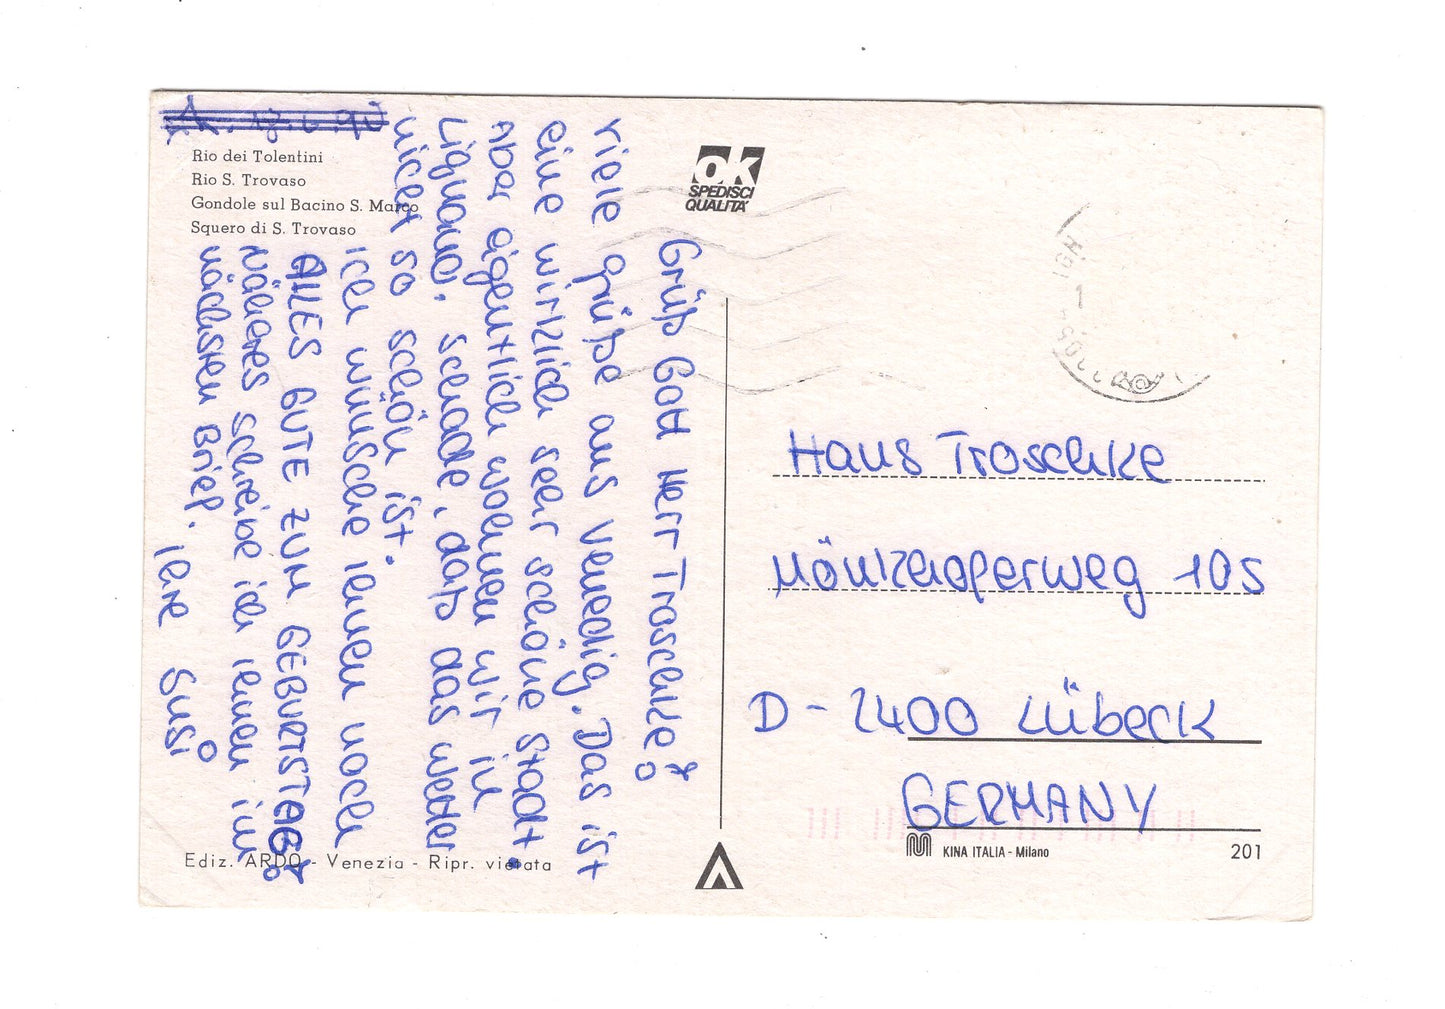 Rio dei Tolentini
Rio S. Trovaso
Gondole sul Bacino S. Marco
Squero di S. Trovaso
Grüß Gott Herr Troschke!
Viele Grüße aus Venedig. Das ist
eine wirklich sehr schöne Stadt.
Aber eigentlich wohnen wir in
Lignano. Schade, daß das Wetter
nicht so schön ist.
Ich wünsche Ihnen noch
ALLES GUTE ZUM GEBURTSTAG!
Näheres schreibe ich Ihnen im
nächsten Brief. Ihre Susi
OK
SPEDISCI
QUALITA'
Hans Troschke
Mönkhoferweg 105
D - 2400 Lübeck
GERMANY
KINA ITALIA - Milano
201
Ediz. ARDO - Venezia - Ripr. vietata